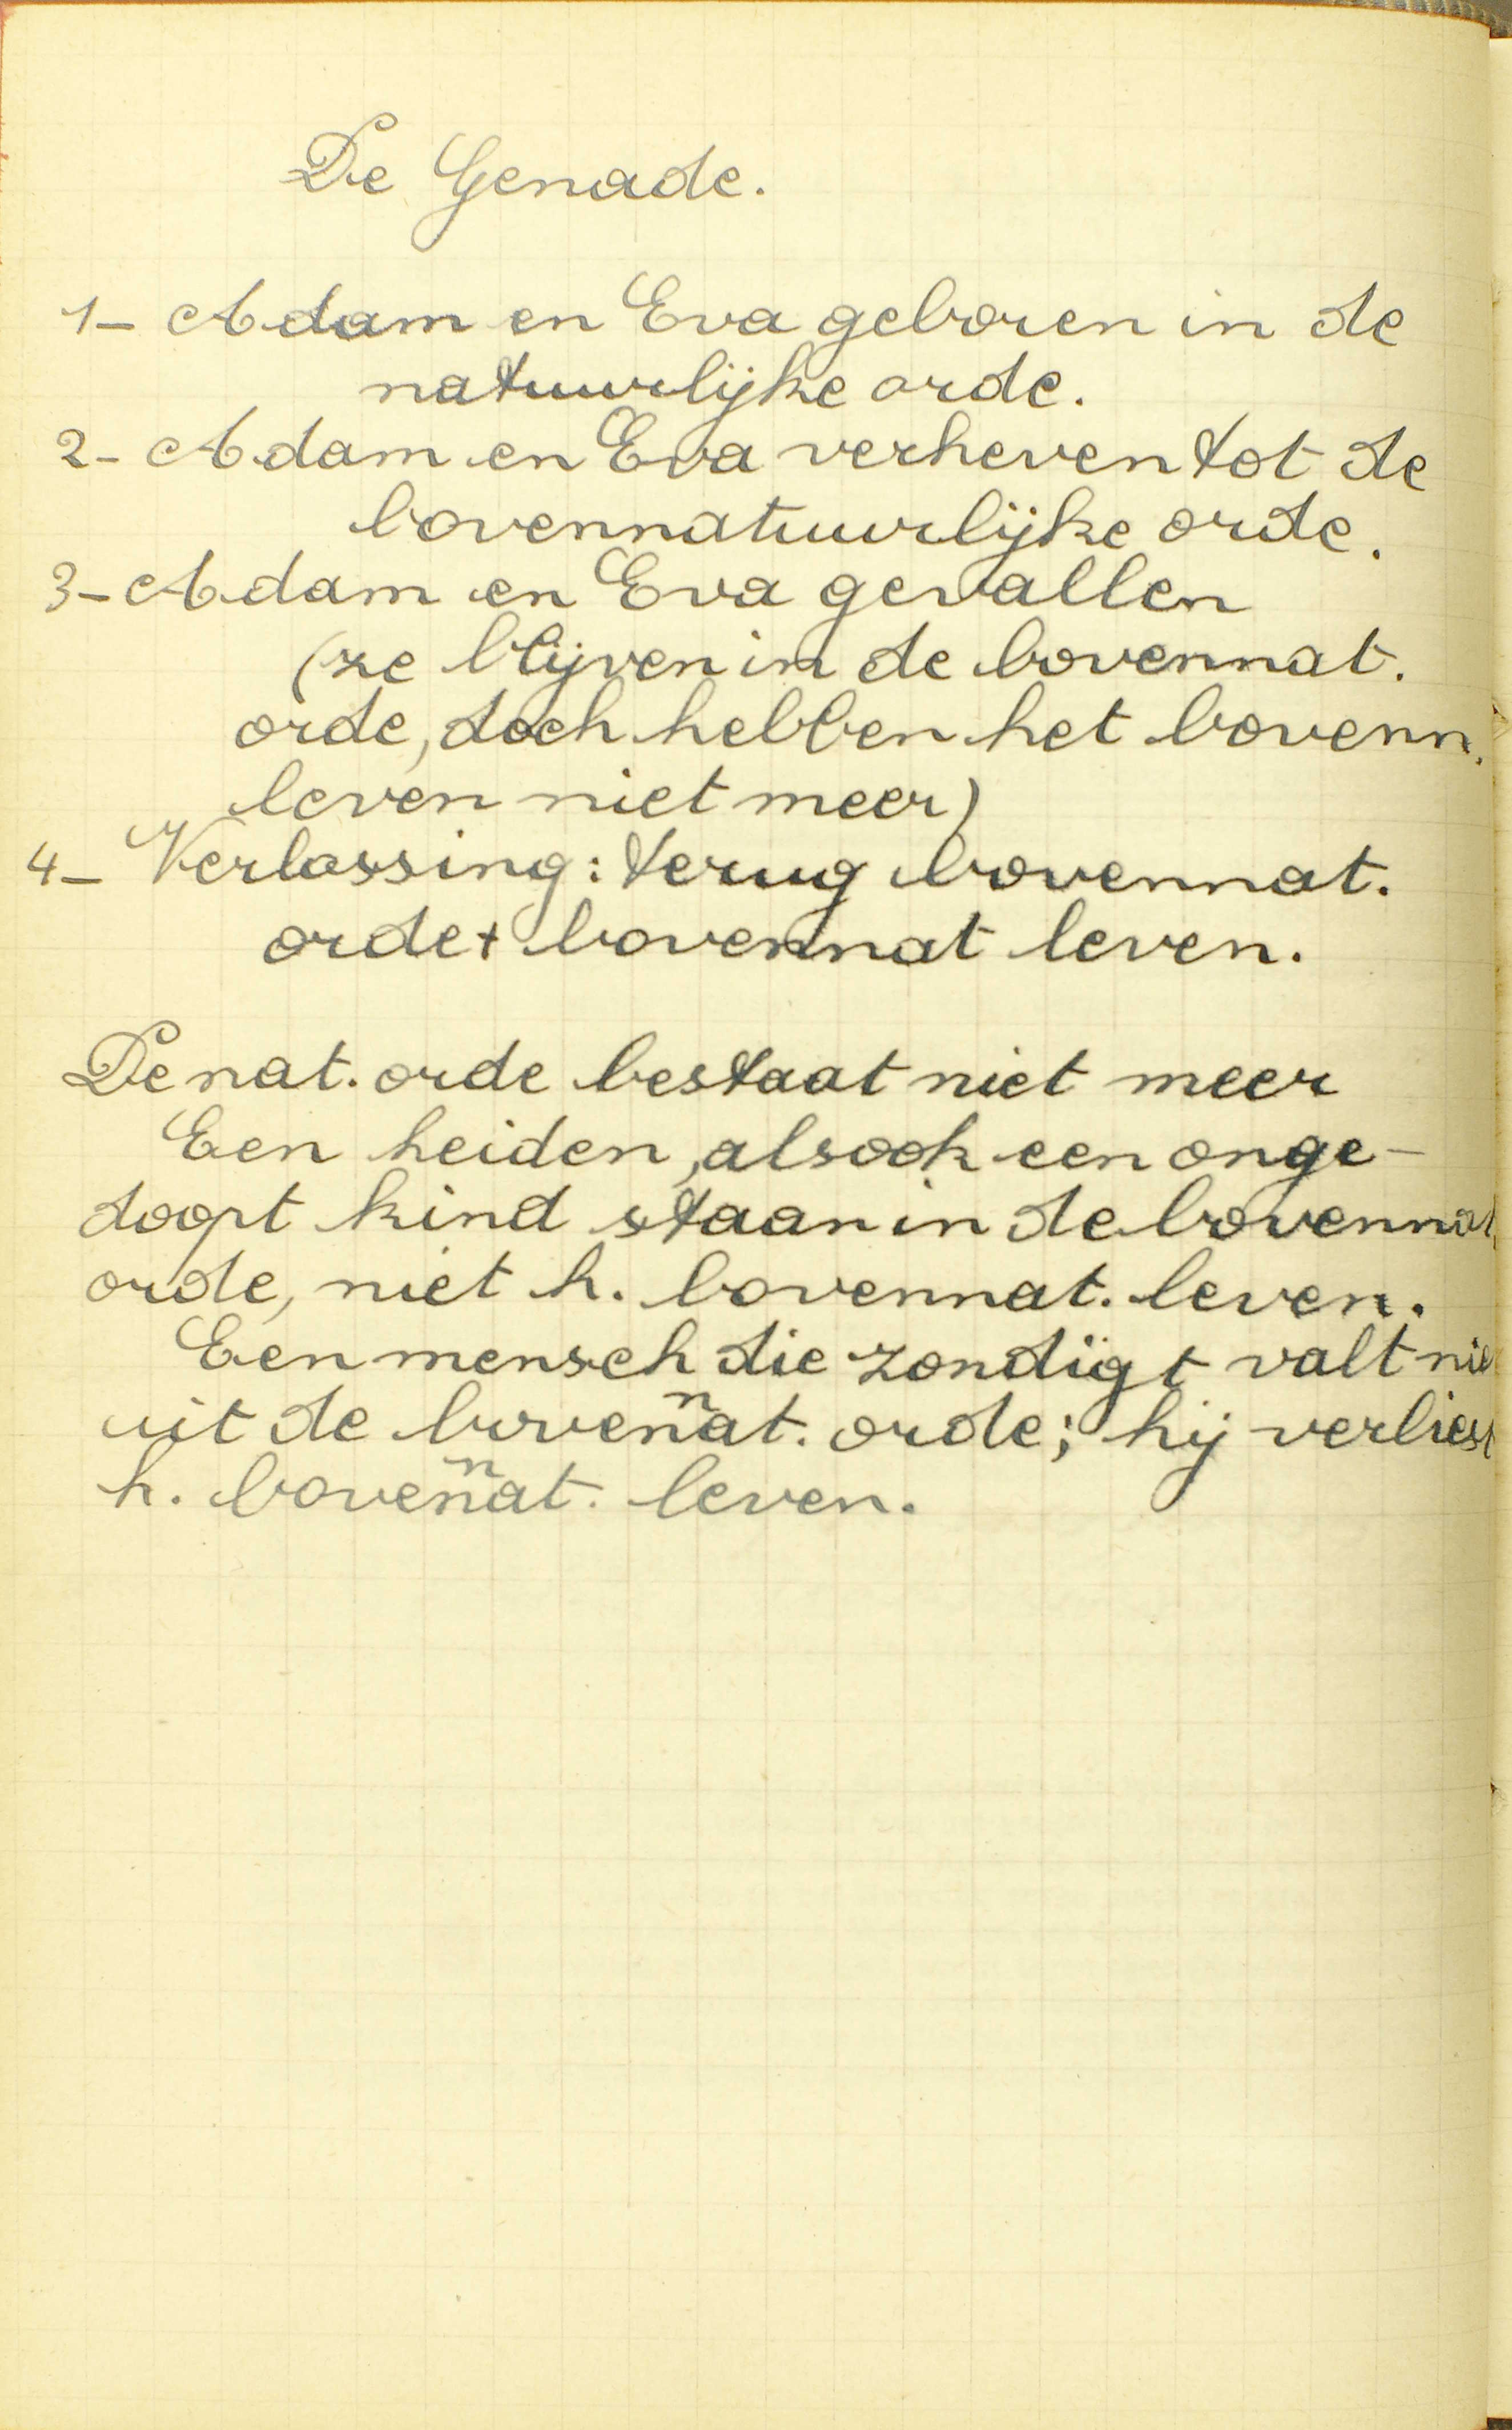 De Genade.
1- Adam en Eva geboren in de
natuurlijke orde.
2- Adam en Eva verheven tot de
bovennatuurlijke orde.
3- Adam en Eva gevallen
(ze blijven in de bovennat.
orde, doch hebben het bovenn.
leven niet meer)
4- Verlossing: terug bovennat.
orde + bovennat leven.
De nat. orde bestaat niet meer
Een heiden, alsook een onge-
doopt kind staan in de bovennat.
orde, niet h. bovennat. leven.
Een mensch die zondigt valt nie
uit de bovennat. orde; hij verliest
h. bovennat. leven.